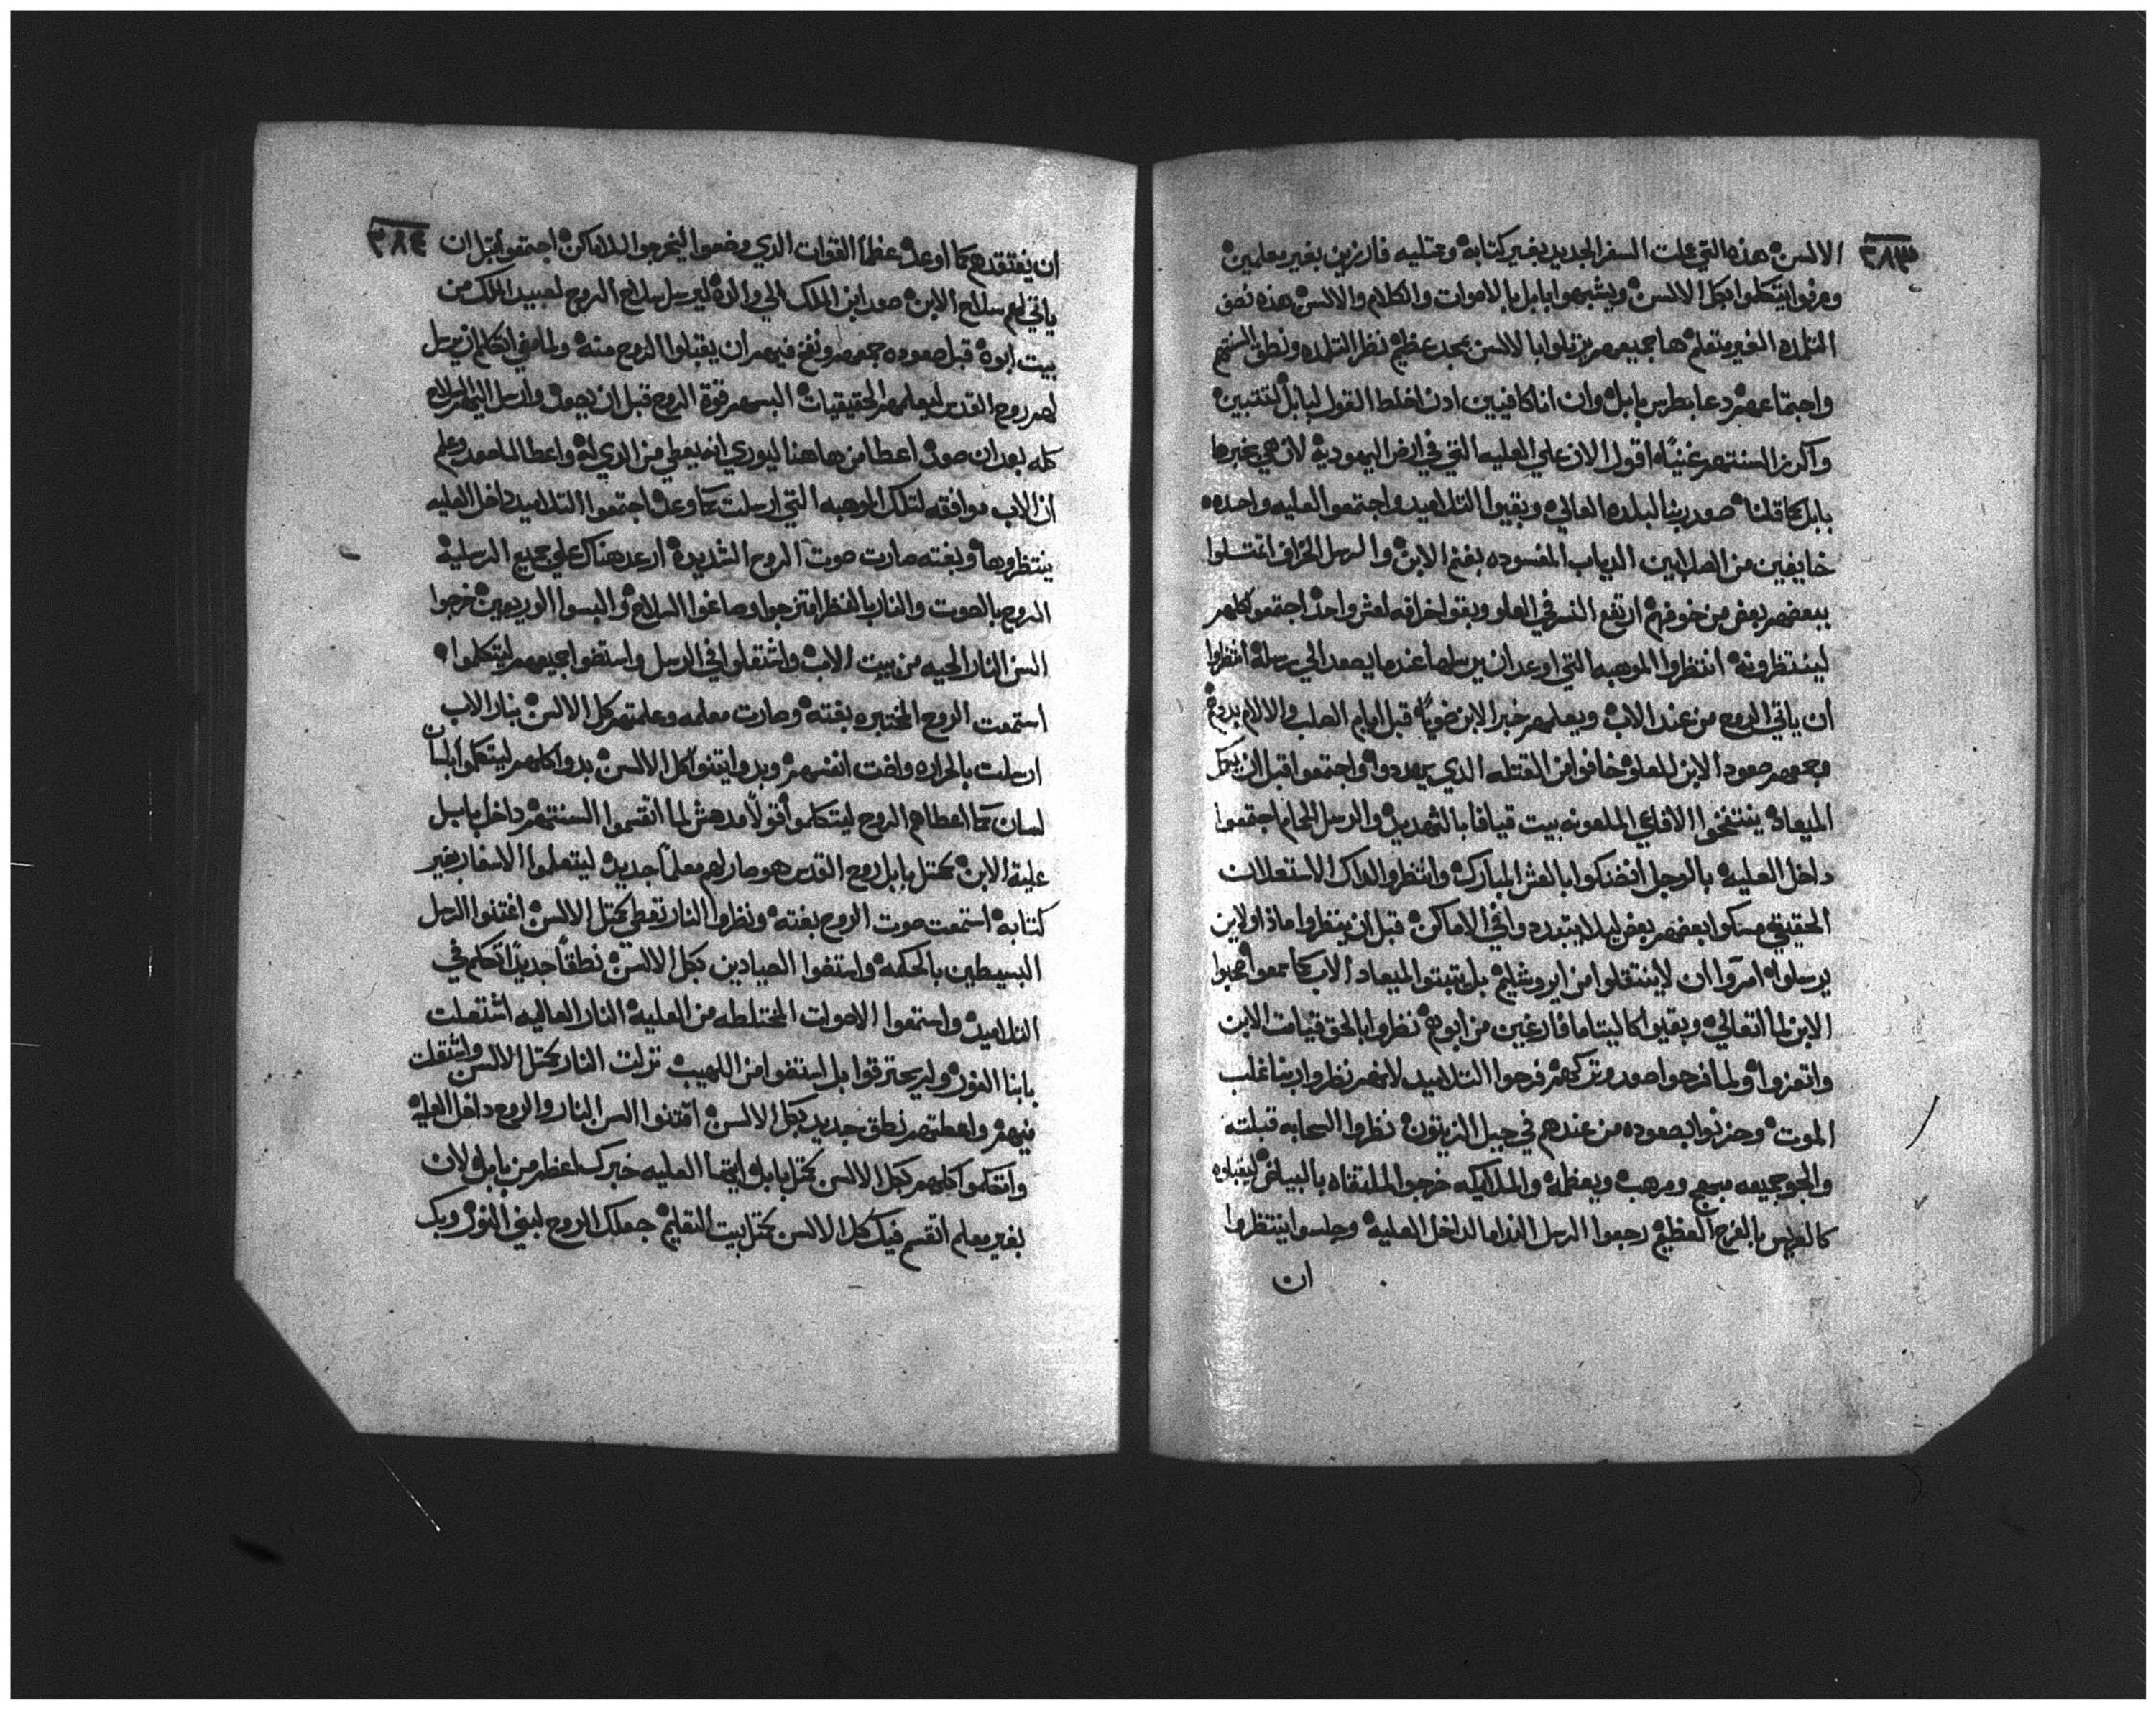 ٣٨٣
الالسن هذه التي علت السفر الجديد بغير كتابة وعتليه فارزين بغير معلمين
وعرفوا يتكلموا بكل الالسن ويشبهوا بابل بالاصوات والكلام والالسن هذه نصف
التلمده الغير متعلم ها جميعهم بالالسن بمجد عظيم نظر التلمده ونطق السنتهم
واجتماعهم دعا بطرس بابل وان انا كافيين ادن اخلط القول لبابل
واكرز السنتهم اقول الان علي العليه التي في ارض اليهودية لان هي بغيرها
بابل كما قلنا صعد ربنا البلده العاليه وبقيوا التلاميد واجتمعوا العليه واحده
خايفين من الصلابين الدياب المفسوده بغنم الابن والرسل الخراف
ببعضهم بعض من خوفهم ارتفع النسر في العلو وبقوا خرافه لعش واحد اجتمعوا كلهم
لينتظرونه انتظروا الموهبه التي اوعد ان يرسلها عندما يصعد الي مرسله انتظروا
ان ياتي الروح من عند الاب ويعلمهم خبر الابن قبل ايام الصلب والالام
صعود الابن للعلو خافوا من القتله الدي يهددوا واجتمعوا قبل ان يكمل
الميعاد الافاعي الملعونه بيت قيافا بالتهديد والرسل الحمام اجتمعوا
داخل العليه بالوجل بالعش المبارك وانتظروا لداك الاستعلان
الحقيقي مسكوا بعضهم بعض ليلا يتبددوا في الاماكن قبل ان ينظروا ماذا ولاين
يرسلوا امروا ان لا ينتقلوا من ايروشليم بل يتبتوا لميعاد الاب كما سمعوا
الابن لما اتعالي وبقيوا كاليتاما فارغين من ابوهم نظروا بالحق قيامت الابن
واتعزوا ولما فرحوا صعد وتركهم فرحوا التلاميد لانهم نظروا ربنا غلب
الموت وحزنوا بصعوده من عندهم في جبل الزيتون نظروا السحابه قبلته
والجو جميعه مبهج ومرهب ويعظمه والملايكه خرجوا لملتقاه بالبياض ليقبلوه
كالعريس بالفرح العظيم رجعوا الرسل الندامه لداخل العليه وجلسوا ينتظروا
ان
٣٨٤
ان يفتقدهم كما اوعد عظما القوات الدي وضعوا ليخرجوا للاماكن اجتمعوا قبل ان
ياتي لهم سلاح الابن صعد ابن الملك الي والده ليرسل سلاح الروح لعبيد الملك من
بيت ابوه قبل صعوده جمعهم ونفخ فيهم ان يقبلوا الروح منه ولما مضي اتكلم ان يرسل
لهم روح القدس ليعلمهم الحقيقيات البسهم قوة الروح قبل ان يصعد وارسل اليهم السلاح
كله بعد ان صعد اعطا من هاهنا ليوري انه يعطي من الدي له واعطا لما صعد وعلم
ان الاب موافقه لتلك الموهبه التي ارسلت كما وعد اجتمعوا التلاميد داخل العليه
ينتظروها وبغته صارت صوت الروح الشديده ارعد هناك علي جميع الرسليه
الروح بالصوت والنار بالمنظر امتزجوا وصاغوا السلاح والبسوا الوريديين خرجوا
السن النار الحيه من بيت الاب واشتعلوا في الرسل واستضوا جميعهم ليتكلموا
استمعت الروح المختبره بغته وصارت معلمه وعلمتهم كل الالسن بنار الاب
ارسلت بالحراره واضت انفسهم وبدوا يتقنوا كل الالسن بدوا كلهم ليتكلموا بلسان
لسان كما اعطاهم الروح ليتكلموا قولا مدهش لما انقسموا السنتهم داخل بابل
علية الابن كمتل بابل روح القدس هو صار لهم معلما جديد ليتعلموا الاسفار بغير
كتابه استمعت صوت الروح بغته ونظروا النار تعطي كمتل الالسن اغتنوا الرسل
البسيطين بالحكمه واستضوا الصيادين بكل الالسن نطقا جديدا اتكلم في
التلاميد واستمعوا الاصوات المختلطه من العليه النار العاليه اشتعلت
بابنا النور ولم يحترقوا بل استضوا من اللهيب نزلت النار كمتل الالسن واشتعلت
فيهم واعطتهم نطق جديد بكل الالسن اقتنوا السن النار والروح داخل العليه
واتكلموا كلهم بكل الالسن كمتل بابل ايتها العليه خبرك اعظم من بابل لان
بغير معلم انقسم فيك كل الالسن كمتل بيت التعليم جعلك الروح لبني النور وبك